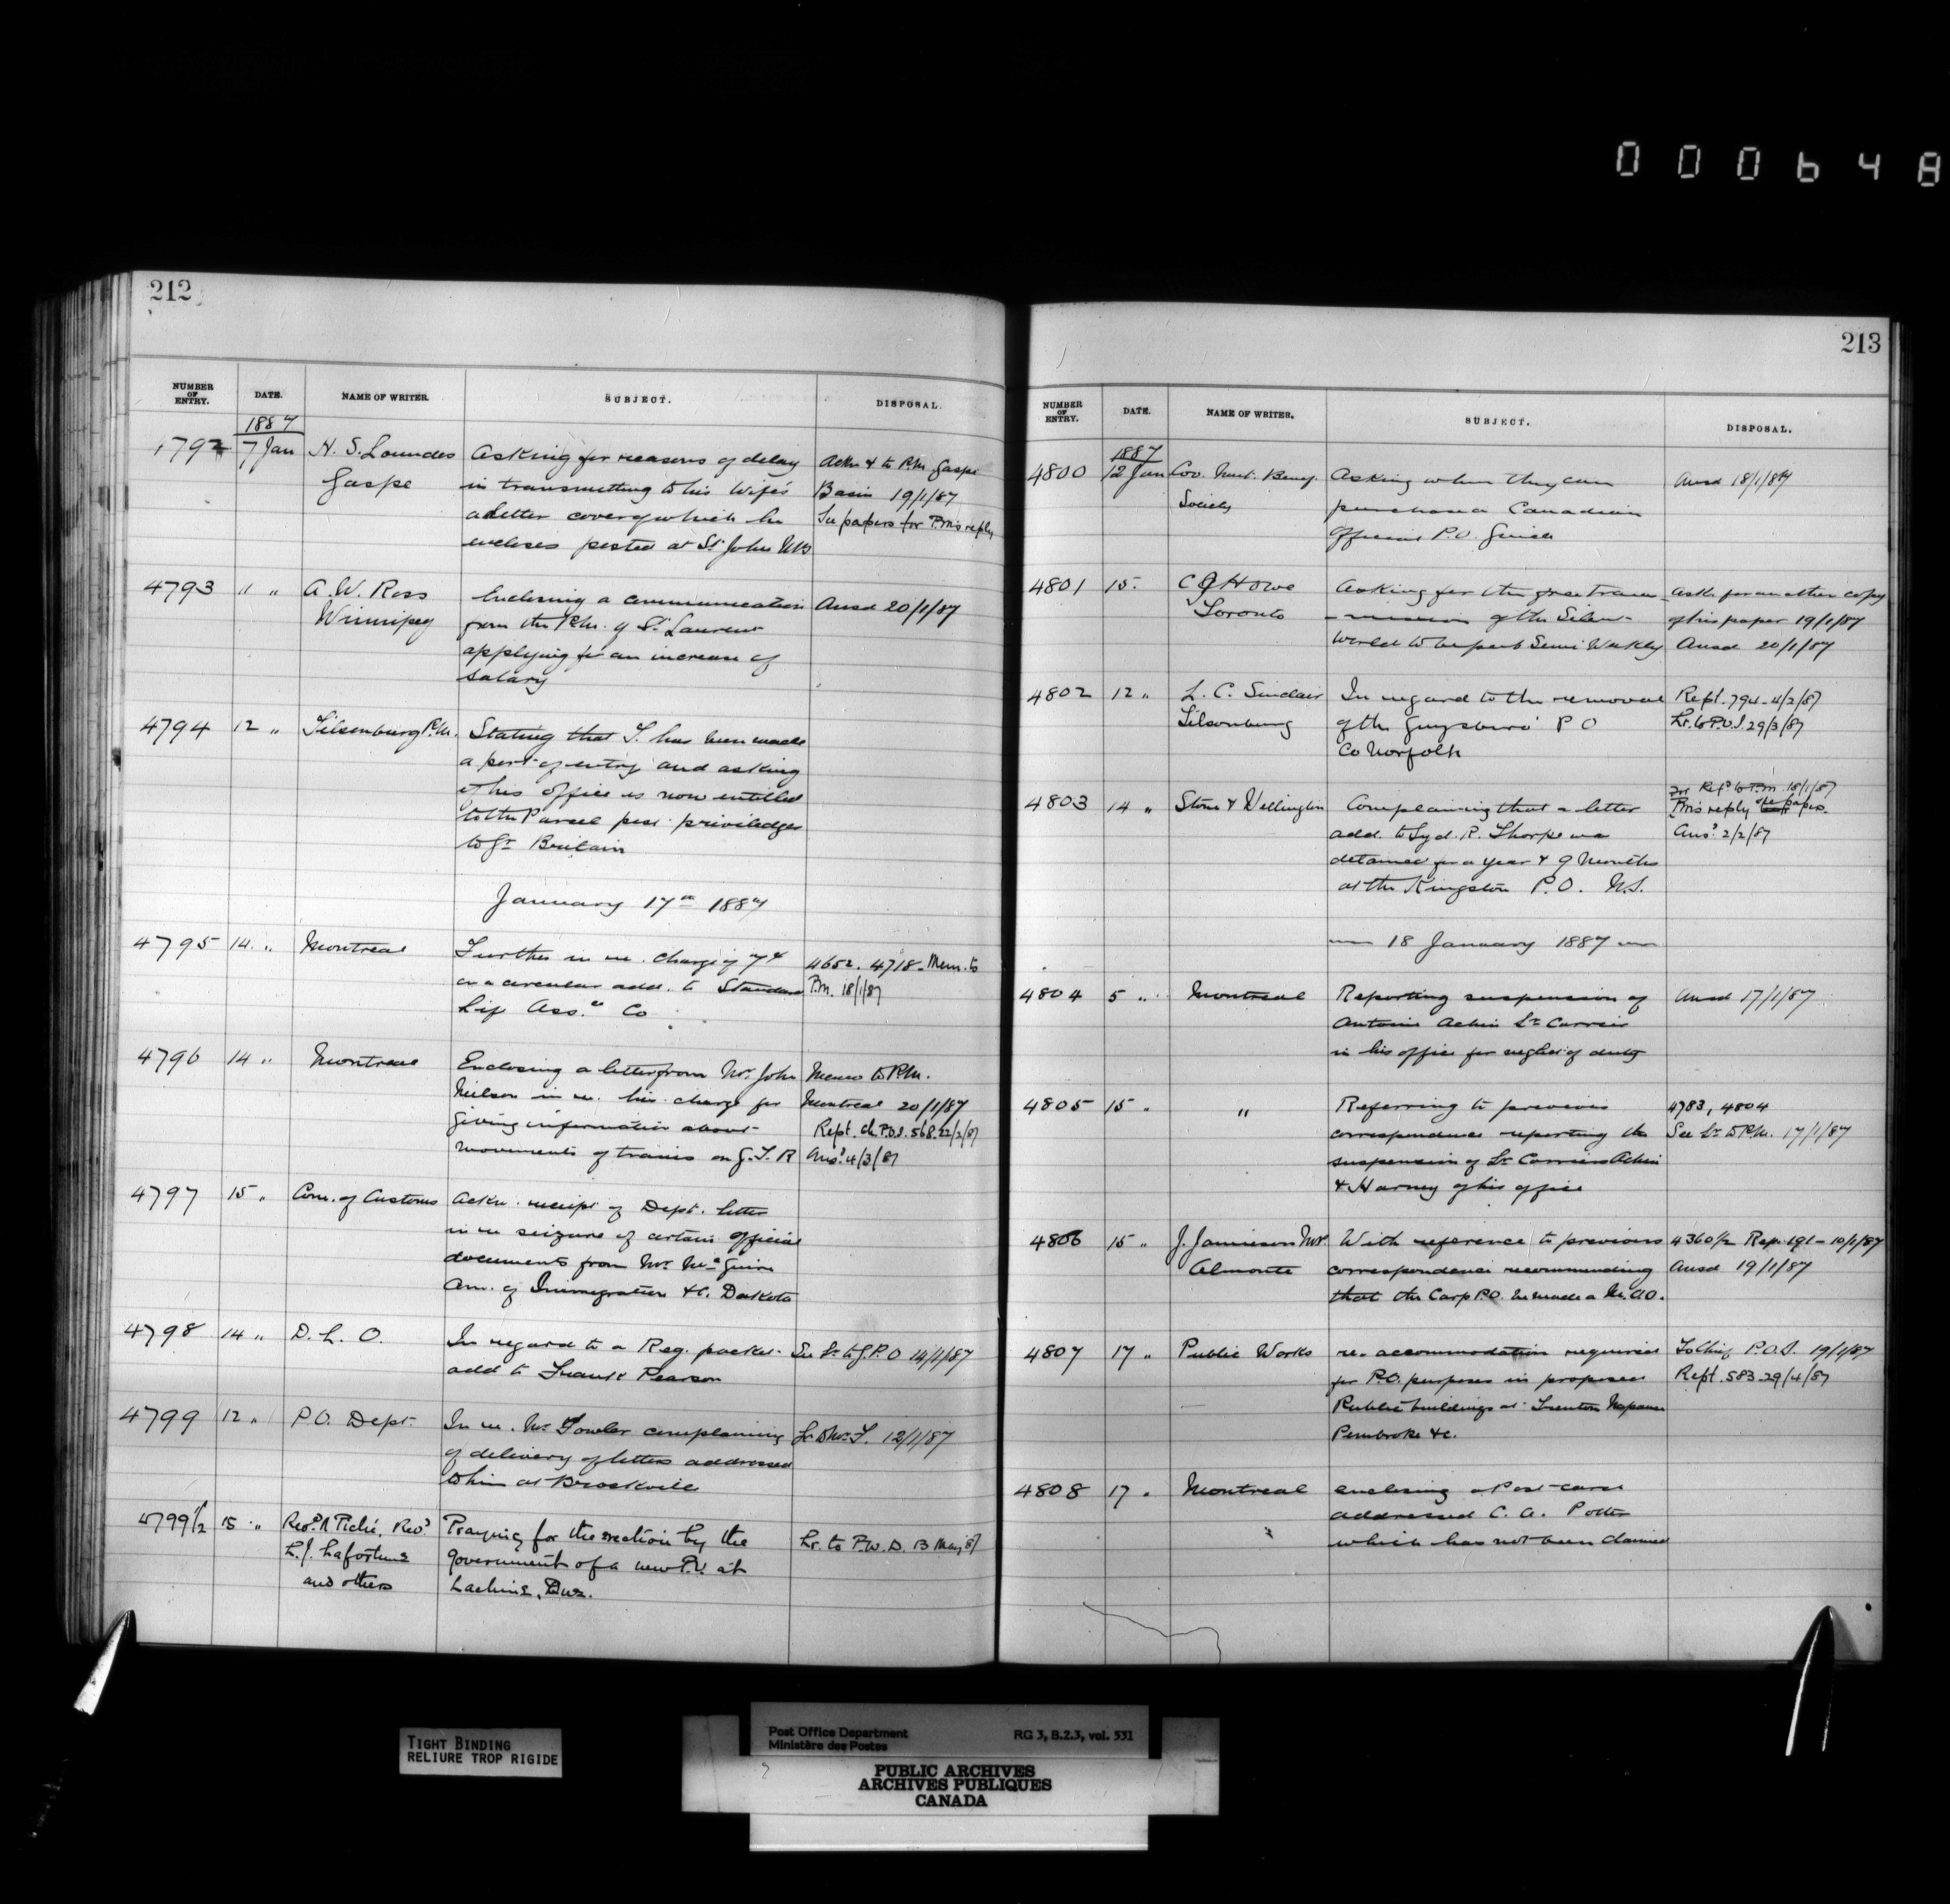 000648
212
NUMBER OF ENTRY. DATE. NAME OF WRITER. SUBJECT. DISPOSAL.
1887
4792 7 Jan H. S. Loundes Asking for reasons of delay Ackn & to P.M. Gaspe
Gaspe in transmitting to his Wife's Basin 19/1/87
a letter cover of which he See papers for P.M's reply
encloses posted at St John NB
4793 11 " A. W. Ross Enclosing a communication Ansd 20/1/87
Winnipeg from the P.M. of St Laurent
applying for an increase of
Salary
4794 12 " Tilsonburg P.M. Stating that T. has been made
a port of entry and asking
if his office is now entitled
to the Parcel post priviledges
to Gt Britain
January 17th 1887
4795 14 " Montreal Further in re. charge of 7¢ 4652. 4718. Mem. to
on a circular add. to Standard P.M. 18/1/87
Life Ass.ce Co
4796 14 " Montreal Enclosing a letter from Mr. John Memo to P.M.
Neilson in re. his charge for Montreal 20/1/87
giving information about Rept. Ch. P.O.I. 568. 22/2/87
movements of trains on G.T.R Ansd. 4/3/87
4797 15 " Com. of Customs Ackn. receipt of Dept. letter
in re seizure of certain official
documents from Mr. McGuire
Am. of Immigration &c. Dakota
4798 14 " D. L. O. In regard to a Reg. packet See Lr to G.P.O 14/1/87
add to Frank Pearson
4799 12 " P.O. Dept. In re. Mr Fowler complaining Lr to Mr. F. 12/1/87
of delivery of letters addressed
to him at Brockville
4799 1/2 15 " Revd. N Piché, Revd. Praying for the erection by the Lr. to P.W.D. 13 May 87
L. J. Lafortune government of a new P.O. at
and others Lachine, Que.
213
NUMBER OF ENTRY. DATE. NAME OF WRITER. SUBJECT. DISPOSAL.
1887
4800 12 Jan Cov. Mut. Benef. Asking where they can Ansd 18/1/87
Society purchase a Canadian
Official P.O. Guide
4801 15 " C J Howe Asking for the free trans- Ask for another copy
Toronto -mission of the Silent of his paper 19/1/87
World to be pub Semi Weekly Ansd 20/1/87
4802 12 " L. C. Sinclair In regard to the removal Rept. 794. 4/2/87
Tilsonburg of the Guysboro' P O Lr. to P.O.I. 29/3/87
Co Norfolk
4803 14 " Stone & Wellington Complaining that a letter For Rept to P.M. 18/1/87
add. to Syd. R. Thorpe was P.M's reply see papers.
detained for a year & 9 months Ansd. 2/2/87
at the Kingston P.O. N.S.
18 January 1887
4804 5 " Montreal Reporting suspension of Ansd 17/1/87
Antoine Achin Lr Carrier
in his office for neglect of duty
4805 15 " " Referring to previous 4783, 4804
correspondence reporting the See Lr to P.M. 17/1/87
suspension of Lr Carriers Achin
& Harney of his office
4806 15 " J. Jamieson M.P. With reference to previous 4360 1/2 Rep. 191 - 10/1/87
Almonte correspondence recommending Ansd 19/1/87
that the Carp P.O. be made a M.O.O.
4807 17 " Public Works re. accommodation required To Chief P.O.I. 19/1/87
for P.O. purposes in proposed Rept. 583. 29/4/87
Public buildings at Trenton Napanee
Pembroke &c.
4808 17 " Montreal enclosing a Post-card
addressed C. A. Potter
which has not been claimed
TIGHT BINDING
RELIURE TROP RIGIDE
Post Office Department RG 3, B.2.3, vol. 531
Ministère des Postes
PUBLIC ARCHIVES
ARCHIVES PUBLIQUES
CANADA